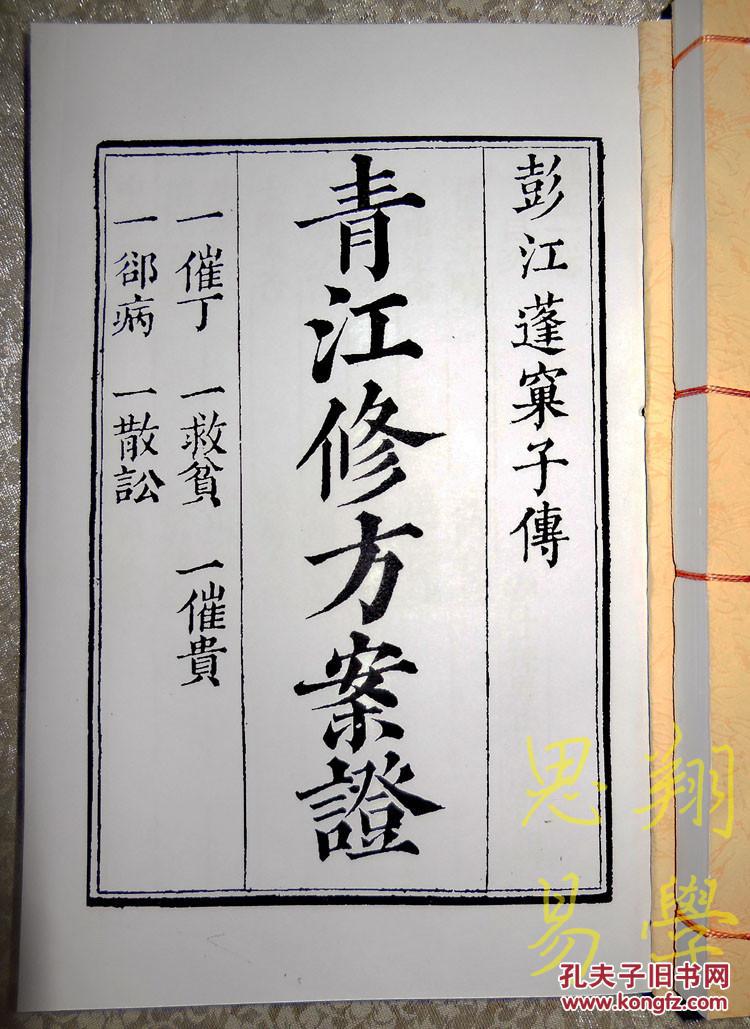 彭江蓬窠子傳
青江修方案證
一催丁 一救貧 一催貴
一郤病 一散訟
翔學
思易
孔夫子旧书网
www.kongfz.com